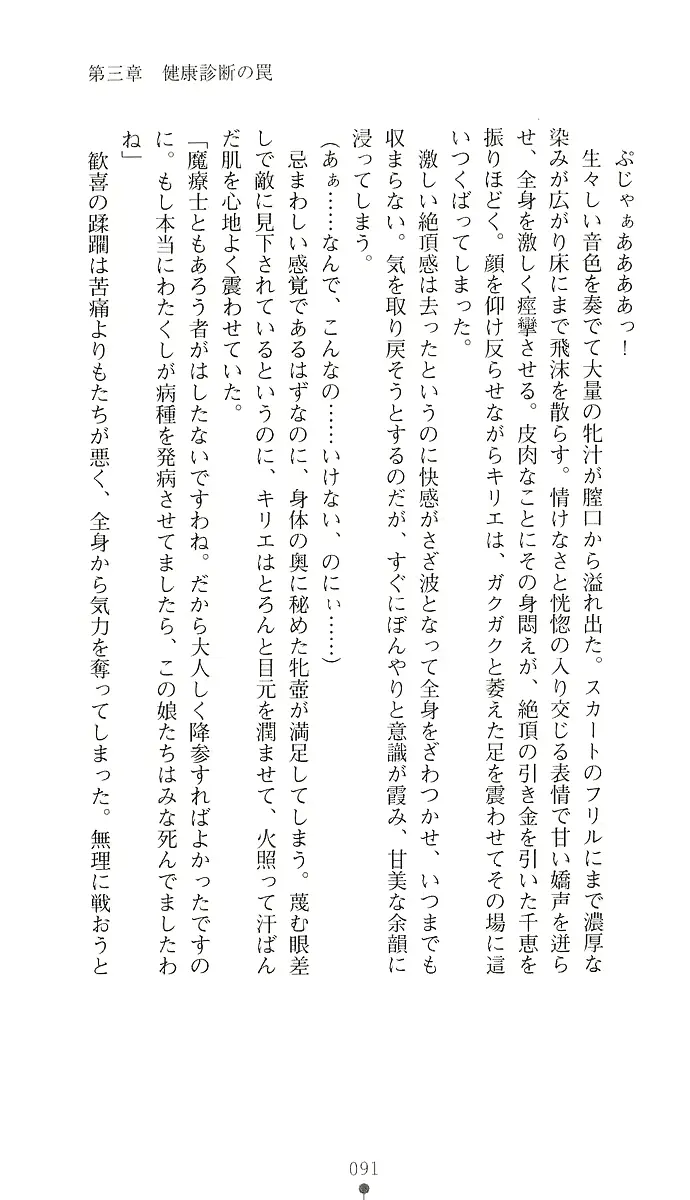 第三章　健康診断の罠
ぷじゃぁああああっ！
生々しい音色を奏でて大量の牝汁が膣口から溢れ出た。スカートのフリルにまで濃厚な
染みが広がり床にまで飛沫を散らす。情けなさと恍惚の入り交じる表情で甘い嬌声を迸ら
せ、全身を激しく痙攣させる。皮肉なことにその身悶えが、絶頂の引き金を引いた千恵を
振りほどく。顔を仰け反らせながらキリエは、ガクガクと萎えた足を震わせてその場に這
いつくばってしまった。
激しい絶頂感は去ったというのに快感がさざ波となって全身をざわつかせ、いつまでも
収まらない。気を取り戻そうとするのだが、すぐにぼんやりと意識が霞み、甘美な余韻に
浸ってしまう。
（あぁ……なんで、こんなの……いけない、のにぃ……）
忌まわしい感覚であるはずなのに、身体の奥に秘めた牝壺が満足してしまう。蔑む眼差
しで敵に見下されているというのに、キリエはとろんと目元を潤ませて、火照って汗ばん
だ肌を心地よく震わせていた。
「魔療士ともあろう者がはしたないですわね。だから大人しく降参すればよかったですの
に。もし本当にわたくしが病種を発病させてましたら、この娘たちはみな死んでましたわ
ね」
歓喜の蹂躙は苦痛よりもたちが悪く、全身から気力を奪ってしまった。無理に戦おうと
091